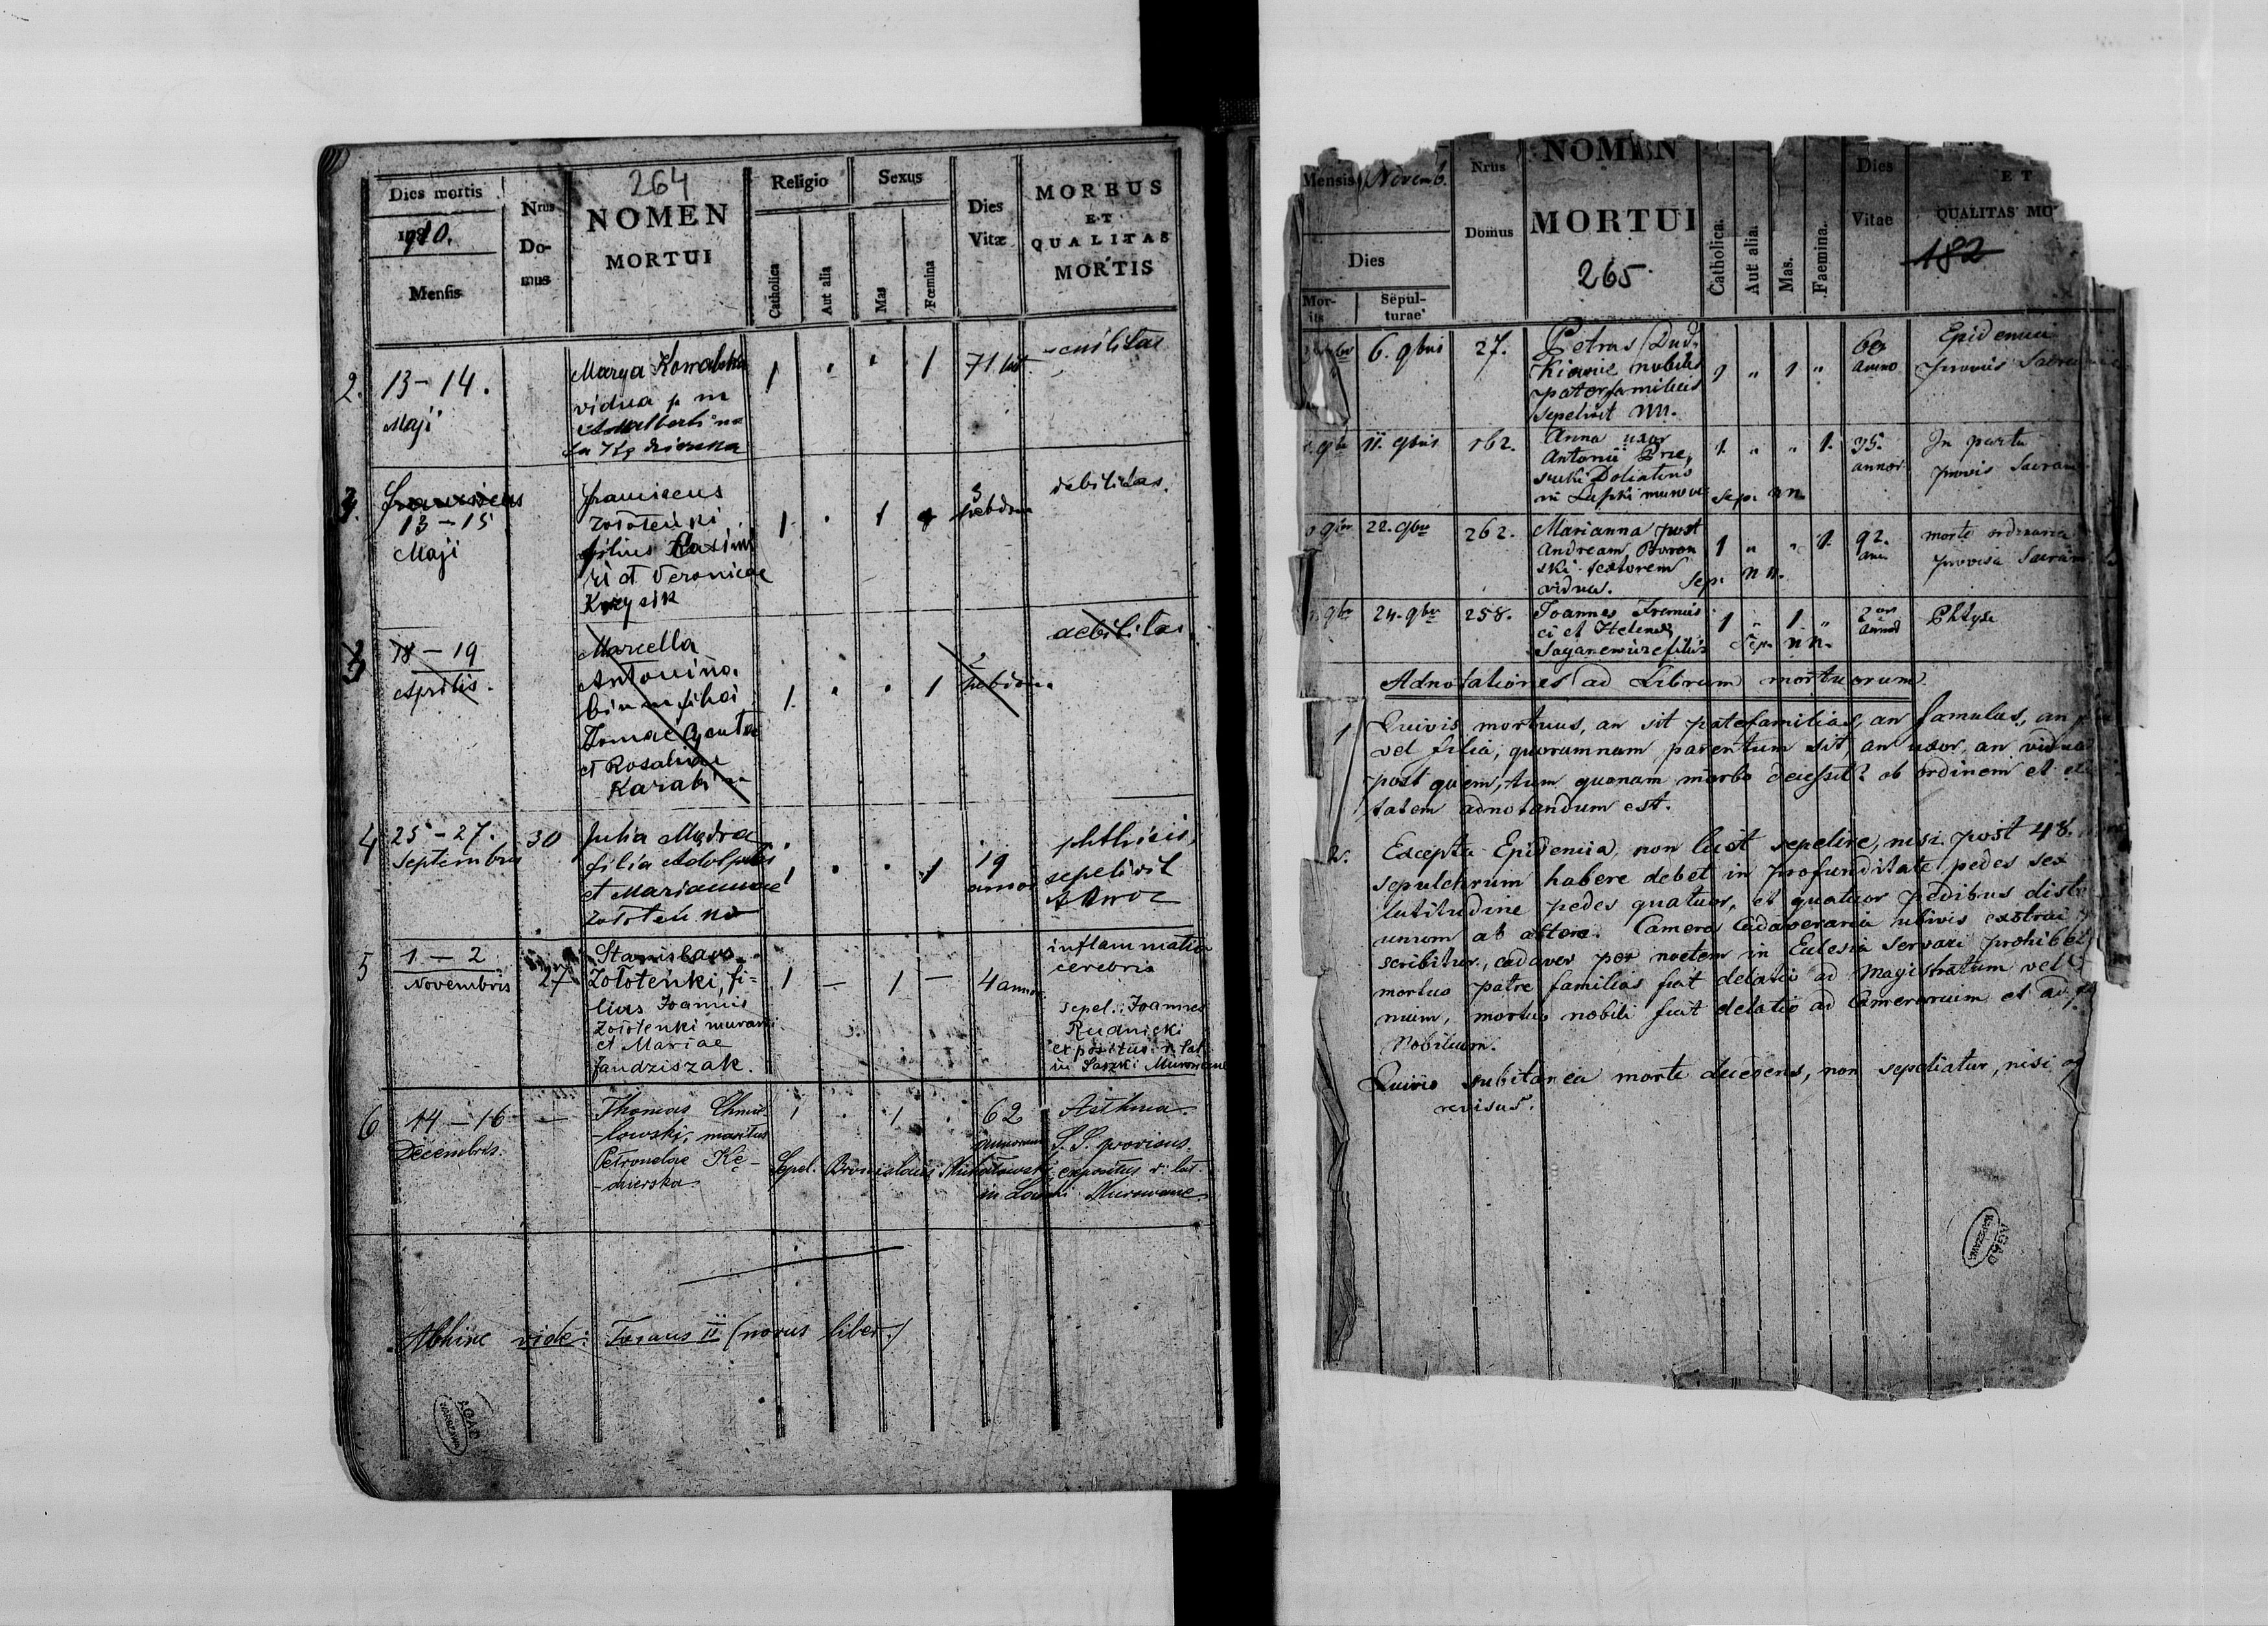 264
Dies mortis
1910.
Mensis
Nrus
Do-
mus
NOMEN
MORTUI
Religio
Catholica
Aut alia
Sexus
Mas
Fœmina
Dies
Vitæ
MORBUS
ET
QUALITAS
MORTIS
2.
13-14.
Maji
Marya Kowalska
vidua p m
1 1 71 lat
senilitas
3.
franciscus
13-15
Maji
franciscus
Zołoteńki
filius Kasimi
ri et Veronicae
Krzysik
1 1 3
hebdom
debilitas
3
18-19
Aprilis.
Marcella
Antonina
bin m filiai
Tomae
et Rosaliae
Karabin
1 1 2
hebdom.
debilitas
4
25-27.
Septembris
30
Julia Mądra
filia Adolphi
et Mariannae
1 1 19
annor
phthisis,
sepelivit
5
1-2
Novembris
27
Stanislaus
Zołoteńki, fi-
lius Joannis
Zołoteńki murarii
et Mariae
Jandziszak.
1 - 1 - 4 annor.
inflammatio
cerebris
Sepel. Joannes
Rudnicki
expositus r. lat
in Laszki Murowane
6
14-16
Decembris.
-
Thomas Chmie
-lowski, maritus
Petronelae Kę-
-dzierska
1 1 62
annorum
Asthma
S.S. provisus.
Sepel. Bronislaus Michałowski, expositus r. lat
in Laszki Murowane.
Abhinc vide: Tomus II (novus liber.)
AGAD
WARSZAWA
Mensis Novemb.
Dies
Mor-
tis
Sepul-
turae
Nrus
Domus
NOMEN
MORTUI
265
Catholica.
Aut alia.
Mas.
Faemina.
Dies
Vitae
ET
QUALITAS MO
182
6. 9bris
27.
Petrus Dud-
nobilis
pater familias
sepelivit nn.
1 " 1 "
60
anno
Epidemia
provis Sacram
11. 9bris
162.
Anna uxor
Antonii
1. " " 1.
35.
annor
In partu
provis Sacram
sep: nn.
22. 9bris
262.
Marianna post
Andream Boron
ski textorem
vidua. Sep: nn.
1 " " 1.
92.
ann
morte ordinaria
provisa Sacram
24. 9bris
258.
Joannes Francis
ci et Helenae
Saganewicz filius
1 " 1. "
Sep. nn.
2
annor
Phtysi
Adnotationes ad Librum mortuorum.
1 Quivis mortuus, an sit paterfamilias, an famulus, an
vel filia, quorumnam parentum sit, an uxor, an vidua
post quem, tum quonam morbo decessit? ob ordinem et
tatem adnotandum est.
2. Excepta Epidemia, non licet sepelire, nisi post 48.
sepulchrum habere debet in profunditate pedes sex
latitudine pedes quatuor, et quatuor pedibus dist
unum ab altero. Camera Cadaveraria ubivis extrui
scribitur, cadaver per noctem in Eclesia servari prohibet
mortuo patre familias fiat delatio ad Magistratum vel
num, mortuo nobili fiat delatio ad Camerarium et ad
Nobilium.
Quivis subitanea morte decedens, non sepeliatur, nisi
revisus.
AGAD
WARSZAWA